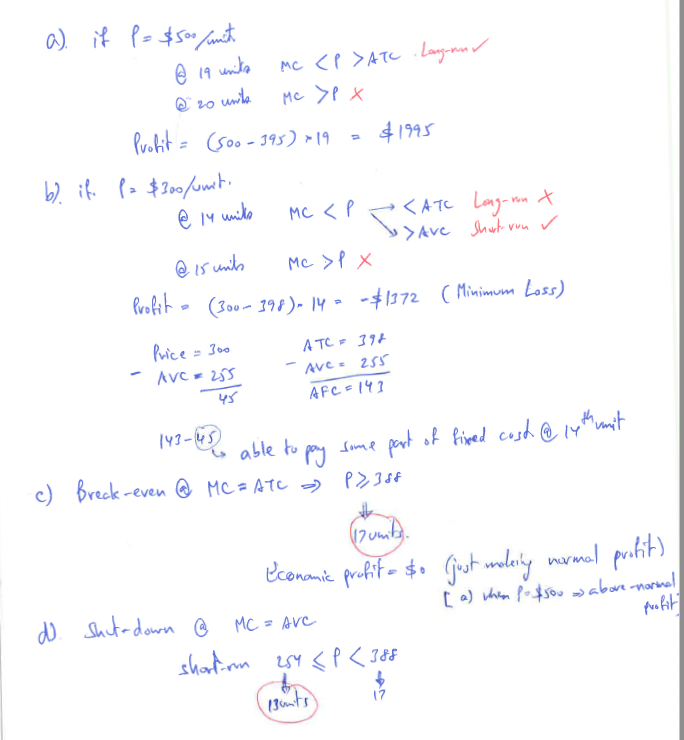 a). if P = $500/unit
@ 19 units MC < P > ATC . Long-run ✓
@ 20 units MC > P ✗
Profit = (500 - 395) × 19 = $1995
b). if P = $300/unit.
@ 14 units MC < P → < ATC Long-run ✗
↘ > AVC Short-run ✓
@ 15 units MC > P ✗
Profit = (300 - 398) × 14 = -$1372 (Minimum Loss)
Price = 300 ATC = 398
- AVC = 255 - AVC = 255
45 AFC = 143
143 - 45 ↳ able to pay some part of fixed cost @ 14th unit
c) Break-even @ MC = ATC ⇒ P ≥ 388
↓
17 units.
Economic profit = $0 (just making normal profit)
[ a) when P = $500 ⇒ above-normal
profit]
d). Shut-down @ MC = AVC
short-run 254 ≤ P < 388
↓ ↓
13 units 17